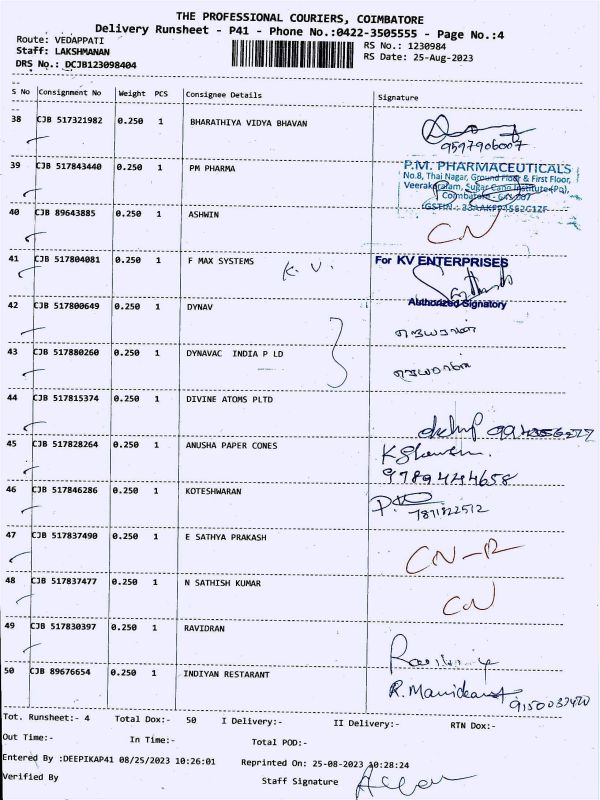 THE PROFESSIONAL COURIERS, COIMBATORE
Delivery Runsheet - P41 - Phone No.:0422-3505555 - Page No.:4
Route: VEDAPPATI
RS No.: 1230984
Staff: LAKSHMANAN
RS Date: 25-Aug-2023
DRS No.: DCJB123098404
S No Consignment No Weight PCS Consignee Details Signature
38 CJB 517321982 0.250 1 BHARATHIYA VIDYA BHAVAN
9597906007
39 CJB 517843440 0.250 1 PM PHARMA
P.M. PHARMACEUTICALS
No.8, Thai Nagar, Ground Floor & First Floor,
Veerakeralam, Sugar Cane Institute (Po),
Coimbatore - 641 007
40 CJB 89643885 0.250 1 ASHWIN
CN
41 CJB 517804081 0.250 1 F MAX SYSTEMS
K. V.
For KV ENTERPRISES
Authorized Signatory
42 CJB 517800649 0.250 1 DYNAV
43 CJB 517880260 0.250 1 DYNAVAC INDIA P LD
44 CJB 517815374 0.250 1 DIVINE ATOMS PLTD
45 CJB 517828264 0.250 1 ANUSHA PAPER CONES
9789444658
46 CJB 517846286 0.250 1 KOTESHWARAN
7871822512
47 CJB 517837490 0.250 1 E SATHYA PRAKASH
CN-R
48 CJB 517837477 0.250 1 N SATHISH KUMAR
CN
49 CJB 517830397 0.250 1 RAVIDRAN
50 CJB 89676654 0.250 1 INDIYAN RESTARANT
Tot. Runsheet:- 4 Total Dox:- 50 I Delivery:- II Delivery:- RTN Dox:-
Out Time:- In Time:- Total POD:-
Entered By :DEEPIKAP41 08/25/2023 10:26:01 Reprinted On: 25-08-2023 10:28:24
Verified By Staff Signature